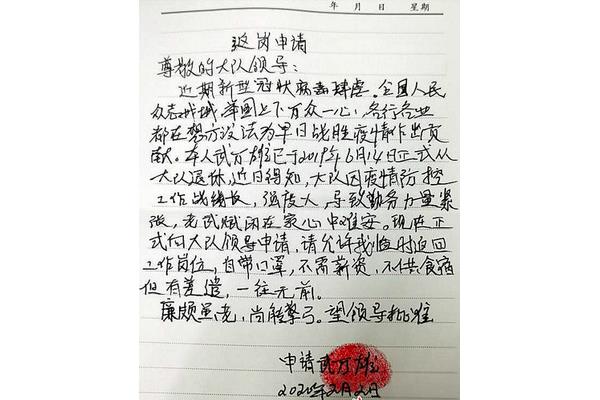 年 月 日 星期
返岗申请
尊敬的大队领导：
近期新型冠状病毒肆虐。全国人民
众志成城，举国上下万众一心，各行各业
都在想方设法为早日战胜疫情作出贡
献。本人武万雄已于2019年6月14日正式从
大队退休。近日得知，大队因疫情防控
工作战线长，强度大，导致勤务力量紧
张，老武赋闲在家心中难安。现在正
式向大队领导申请，请允许我临时返回
工作岗位，自带口罩，不需薪资，不供食宿
但有差遣，一往无前。
廉颇虽老，尚能擎弓。望领导批准
申请武万雄
2020年2月2日